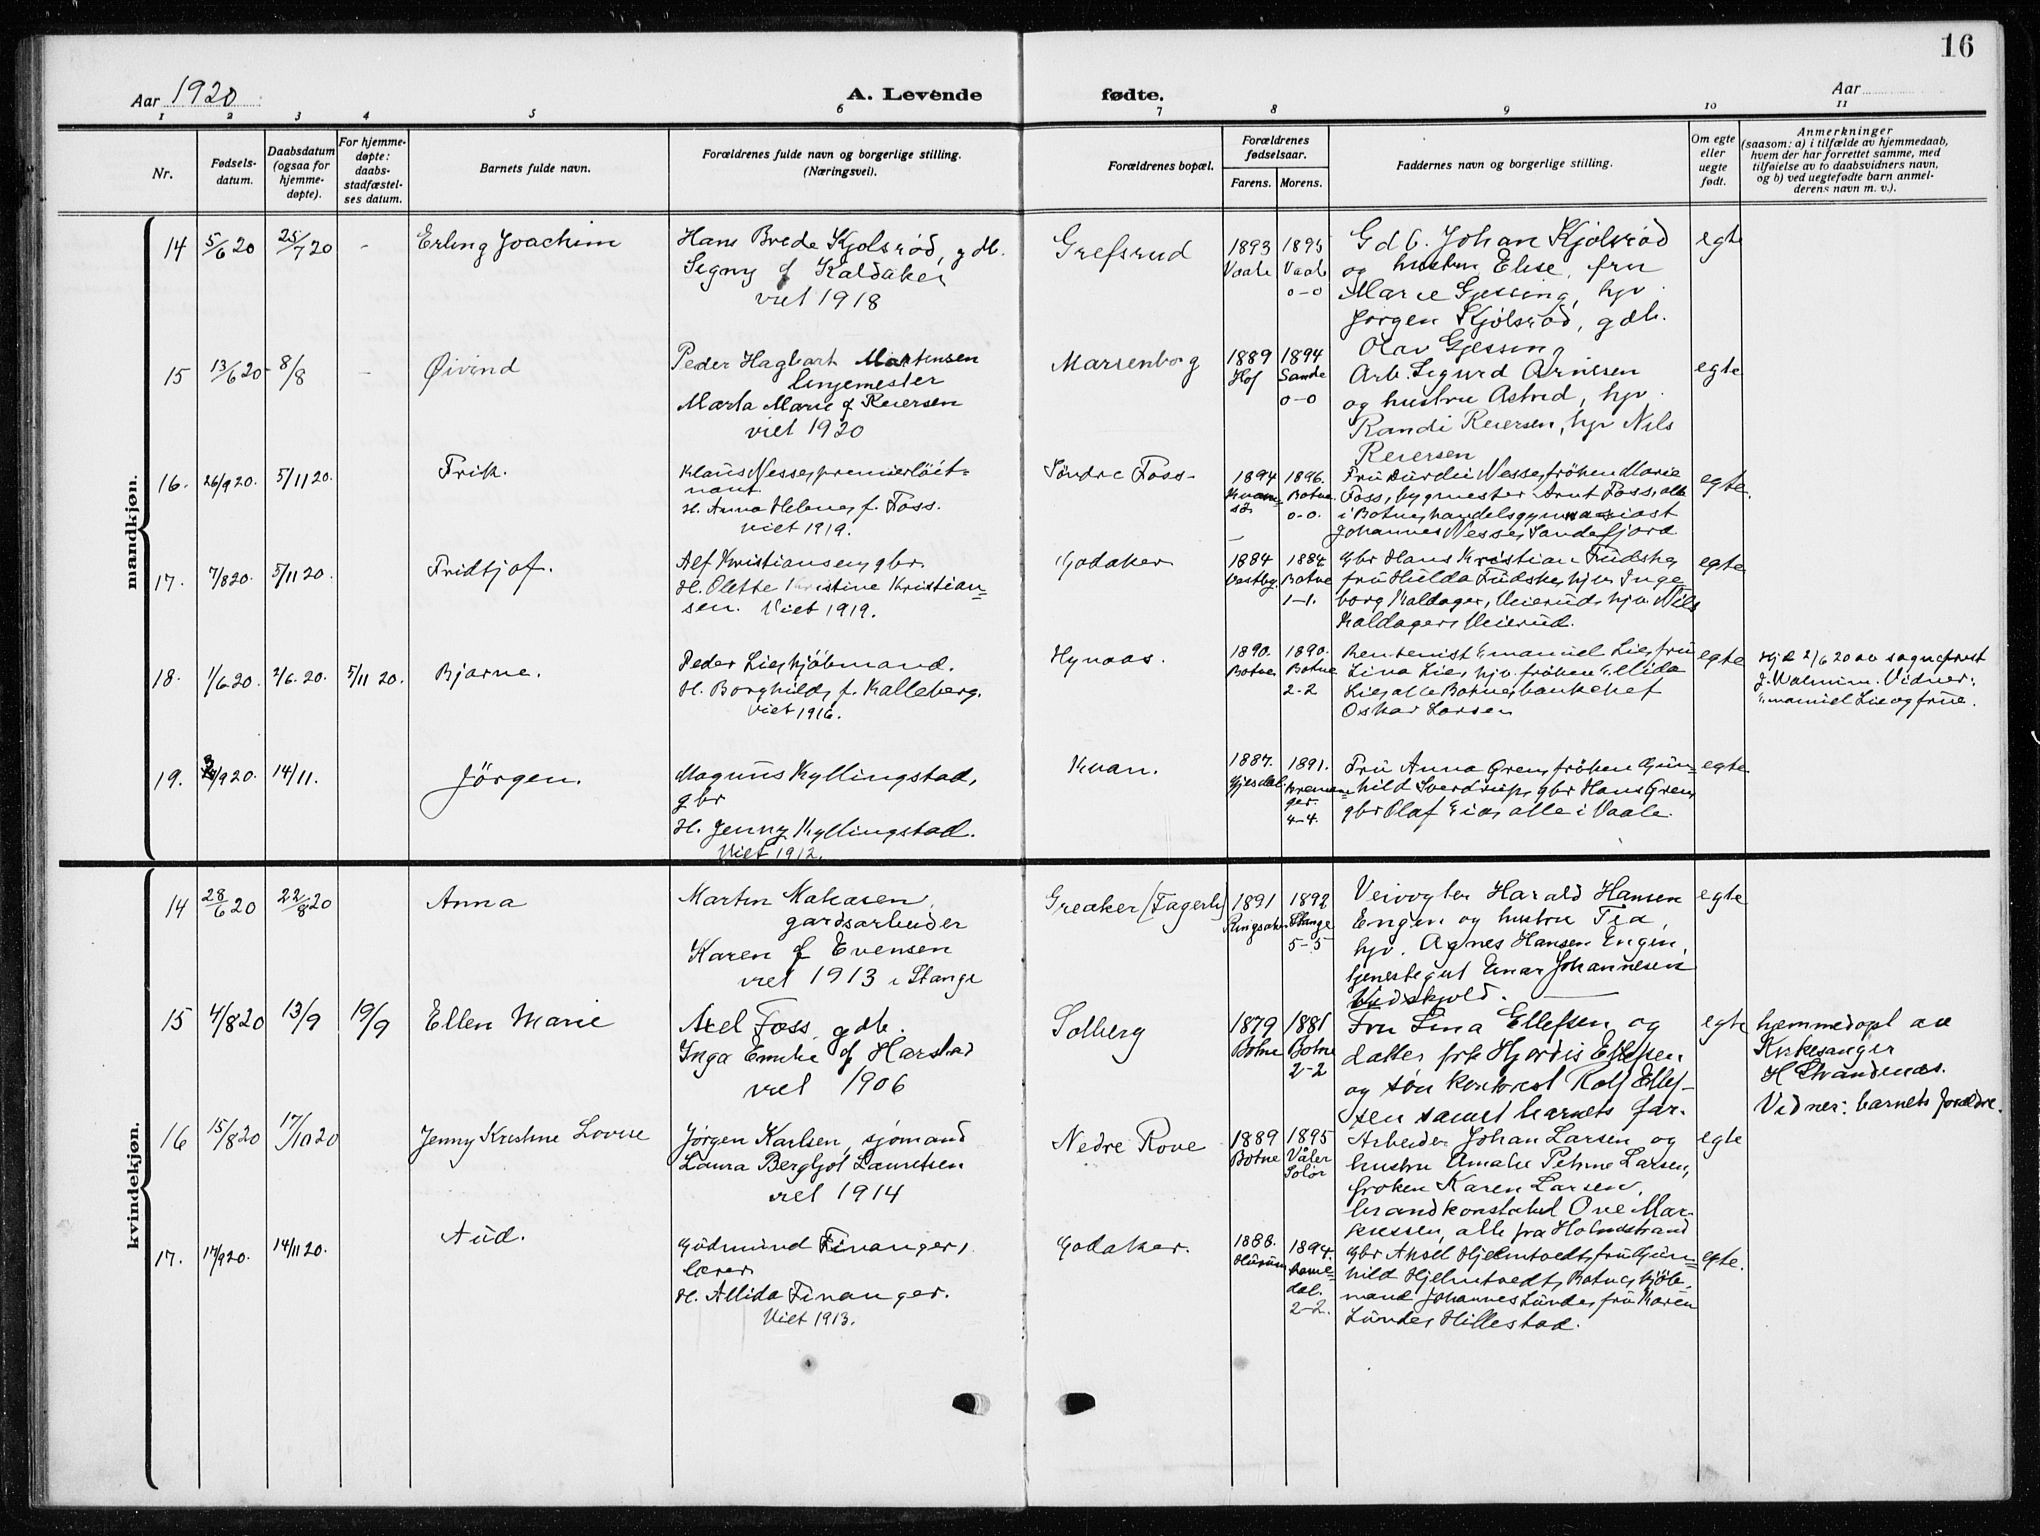 16
Aar 1920
A. Levende fødte.
Aar
1 2 3 4 5 6 7 8 9 10 11
Nr.
Fødsels-
datum.
Daabsdatum
(ogsaa for
hjemme-
døpte).
For hjemme-
døpte:
daabs-
stadfæstel-
ses datum.
Barnets fulde navn.
Forældrenes fulde navn og borgerlige stilling.
(Næringsvei).
Forældrenes bopæl.
Forældrenes
fødselsaar.
Farens. Morens.
Faddernes navn og borgerlige stilling.
Om egte
eller
uegte
født.
Anmerkninger
(saasom: a) i tilfælde av hjemmedaab,
hvem der har forrettet samme, med
tilføielse av to daabsvidners navn,
og b) ved uegtefødte barn anmel-
derens navn m. v.).
mandkjøn.
14 5/6 20 25/7 20 - Erling Joachim
Hans Brede Kjølsrød, gdb.
Signy f Kaldaker
viet 1918
Grefsrud
1893 Vaale
1895 Vaale
0-0
Gdb. Johan Kjølsrød
og hustru Elise, fru
Marie Gjessing, hjv
Jørgen Kjølsrød, gdb.
Olav Gjessing
egte
15 13/6 20 8/8 - Øivind
Peder Hagbart Martinsen
linjemester
Marta Marie f Reiersen
viet 1920
Marsenborg
1889 Hof
1894 Sande
0-0
Arb. Sigurd Arnesen
og hustru Astrid, hjv.
Randi Reiersen, hjv Nils
Reiersen
egte
16. 26/9 20. 5/11 20. Frik.
Klaus Nesse, premierløit-
nant
H. Anna Helene, f. Foss.
Viet 1919.
Søndre Foss-
1894
1896. Botne.
0-0.
Fru Durdei Nesse, frøken Marie
Foss, bygmester Arnt Foss, alle
i Botne, handelsgymnasiast
Johannes Nesse, Sandefjord
egte.
17. 7/8 20. 5/11 20. Fridtjof.
Alf Kristiansen, gbr.
H. Olette Kristine Kristian-
sen. Viet 1919.
Godaker
1884 Vestby.
1884 Botne
1-1.
Gbr Hans Kristian Fudske,
fru Hulda Fudske, hjv. Inge-
borg Kaldager, Veierud, hjv. Nils
Kaldager, Veierud.
egte
18. 1/6 20. 2/6. 20. 5/11 20. Bjarne.
Peder Lie, kjøbmand.
H. Borghild, f. Kalleberg.
Viet 1916.
Hynaas.
1890. Botne.
1890. Botne
2-2
Rentenist Emanuel Lie, fru
Lina Lie, hjv. frøken Ellida
Lie, alle Botne, bankchef
Oskar Larsen
egte
Hjd 2/6 20 av sogneprest
J. Walnum. Vidner:
Emanuel Lie og frue.
19. /9 20. 14/11. Jörgen.
Magnus Kyllingstad,
gbr
H. Jenny Kyllingstad.
Viet 1912.
Kvan.
1887. Gjesdal.
1891. Bremanger.
4-4.
Fru Anna Gren, frøken Gun-
hild Sverdrup, gbr Hans Gren,
gbr Olaf Eia, alle i Vaale.
egte
kvindekjøn.
14 28/6 20 22/8 20 Anna
Martin Makasen,
gardsarbeider
Karen f Evensen
viet 1913 i Stange
Greaker (Fagerli)
1891 Ringsaker
1892 Stange
5-5
Veivogter Harald Hansen
Engen og hustru Tea,
hjv. Agnes Hansen Engen,
tjenestegut Einar Johannesen
Vidskjold.
egte
15 4/8 20 13/9 19/9 Ellen Marie
Axel Foss, gdb.
Inga Emilie f Harstad
viet 1906
Solberg
1879 Botne
1881 Botne
2-2
Fru Lina Ellefsen og
datter frk Hjørdis Ellefsen
og søn kontorist Rolf Ellef-
sen samt barnets far.
egte
hjemmedøpt av
Kirkesanger
H Strandenæs.
Vidner: barnets forældre.
16 15/8 20 17/10 20 Jenny Kristine Lovise
Jørgen Karlsen, sjømand
Laura Bergljot Lauritsen
viet 1914
Nedre Rove
1889 Botne
1895 Våler Solør
Arbeider Johan Larsen og
hustru Amalie Petrine Larsen,
frøken Karen Larsen,
brandkonstabel Ove Mar-
kussen, alle fra Holmestrand
egte
17. 17/9 20. 14/11 20. Aud.
Gudmund Finanger,
lærer
H. Allida Finanger.
Viet 1913.
Godaker.
1888. Hurum
1894.
dal.
2-2.
Gbr Aksel Hjelmtvedt, fru Gun-
hild Hjelmtvedt, Botne, kjøb-
mand Johannes Lunde, fru Karen
Lunde, Hillestad.
egte.